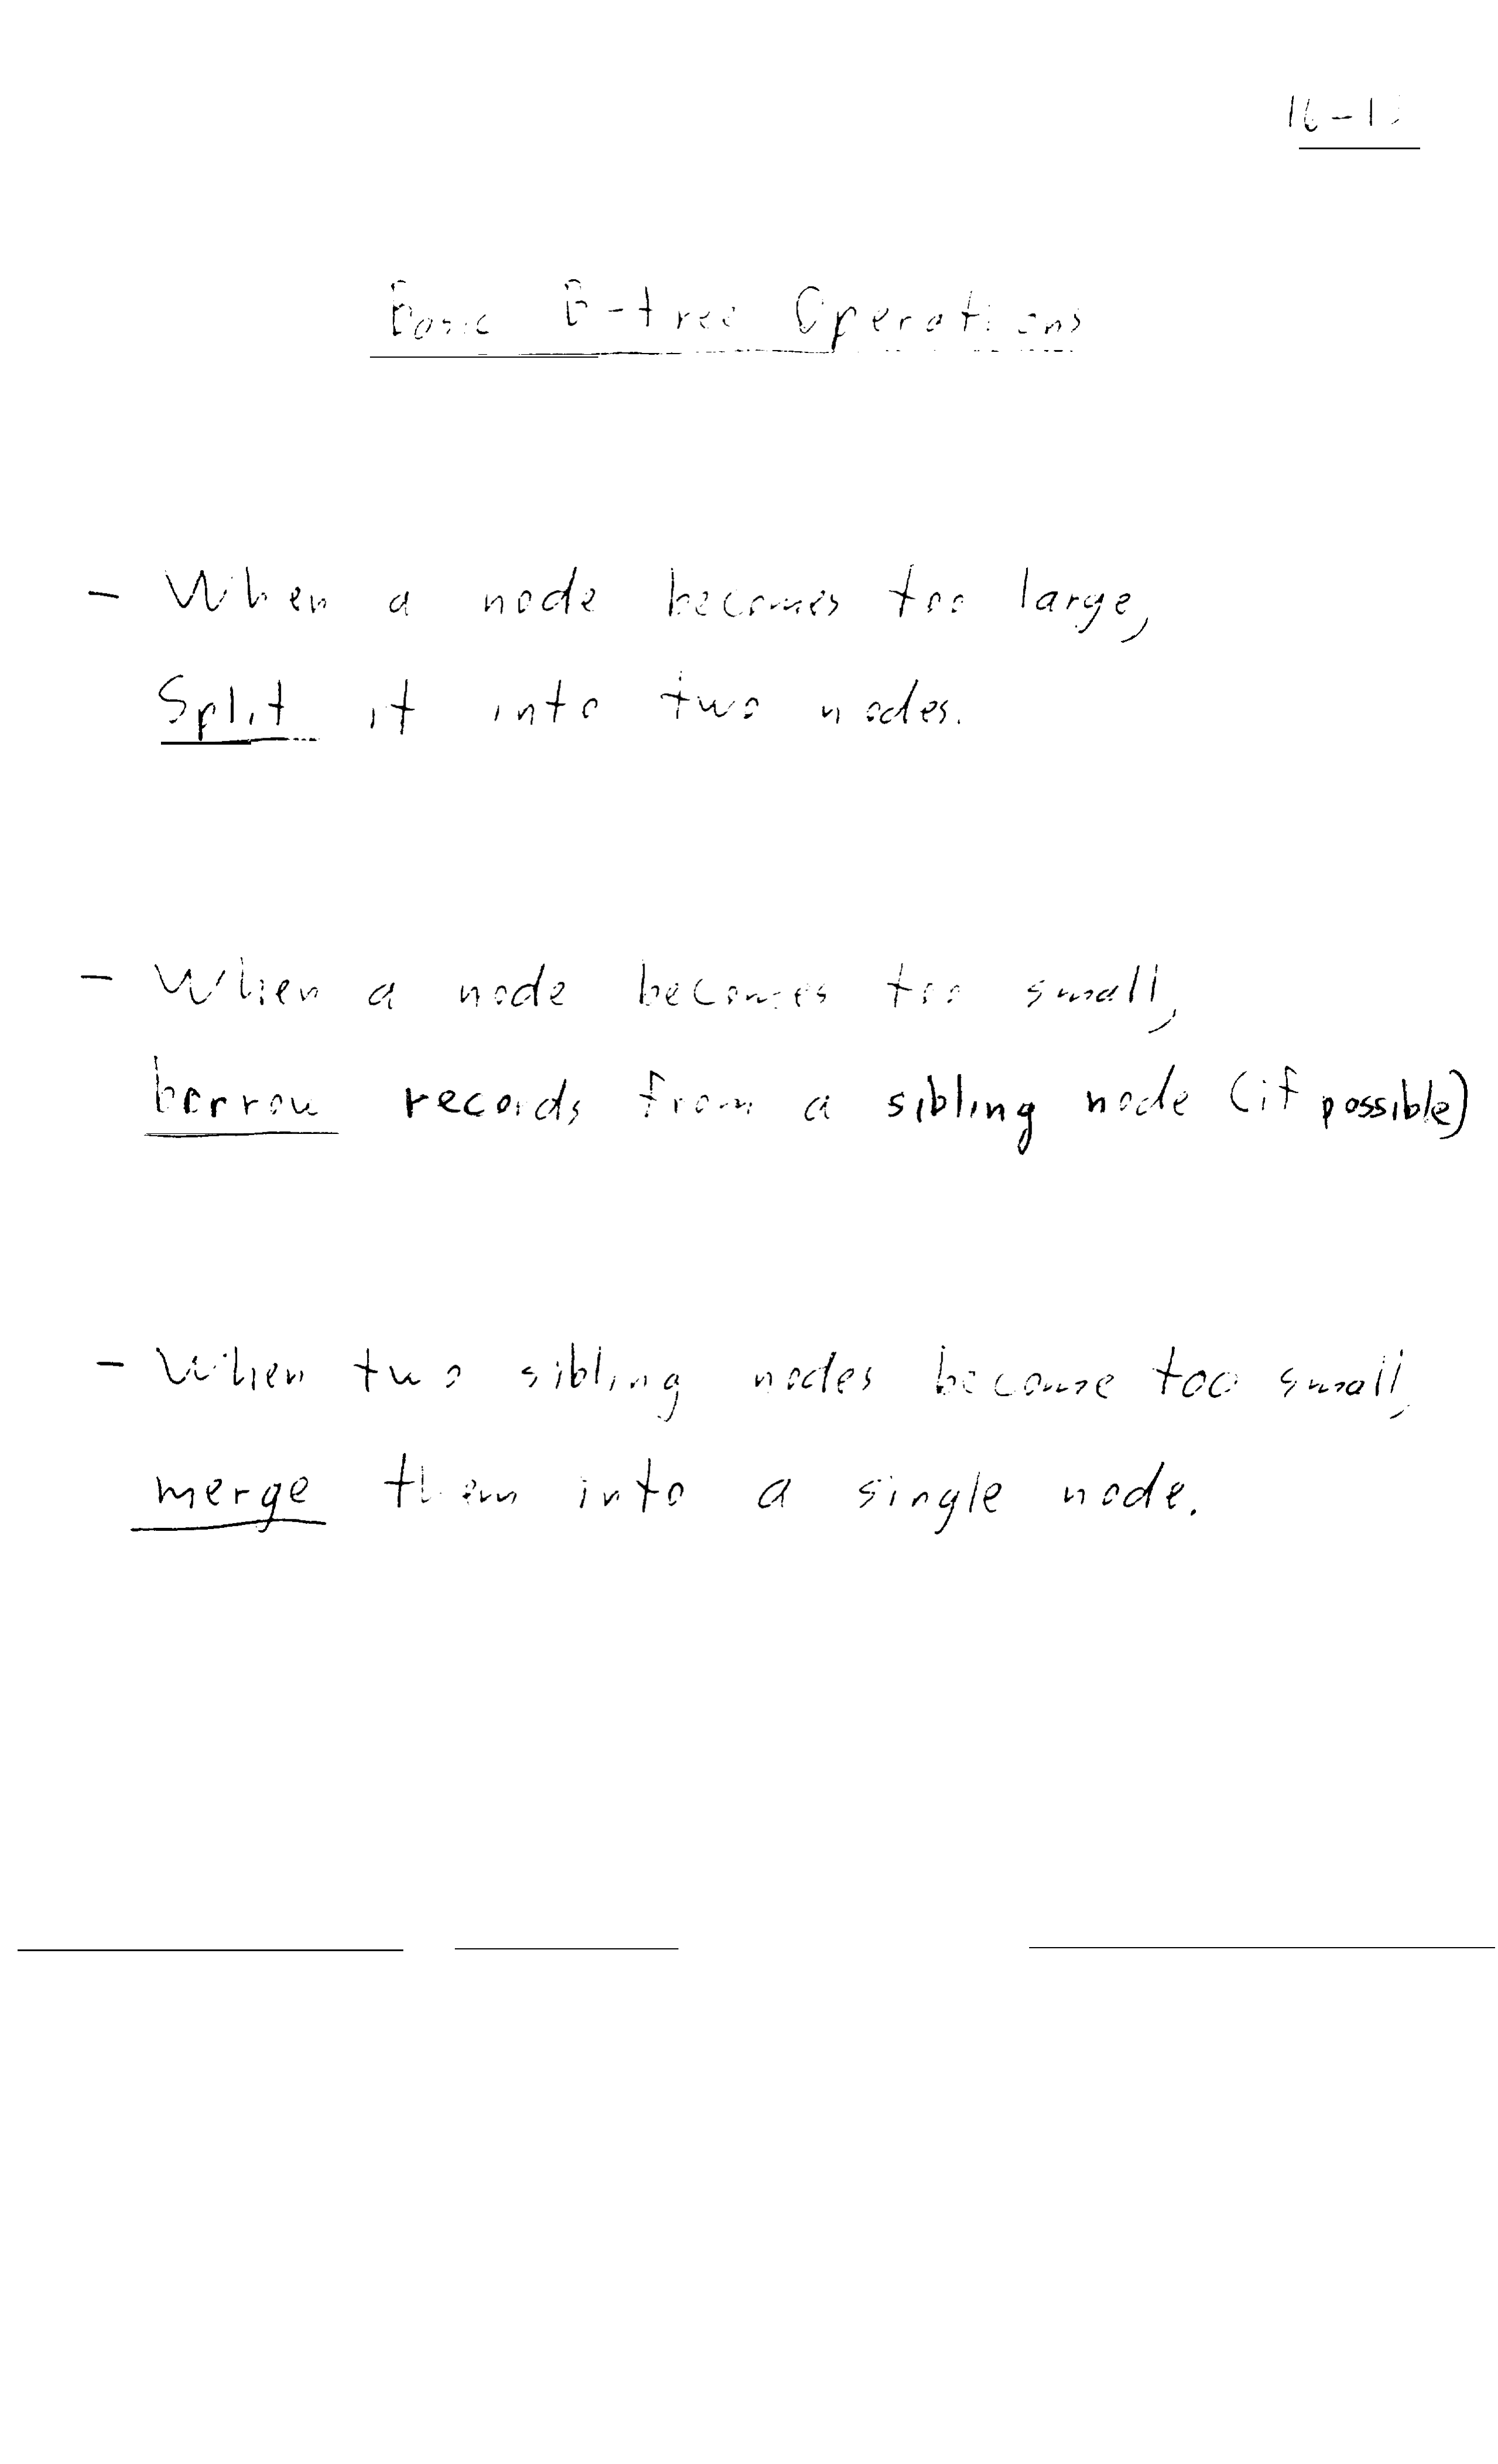 Basic B-tree Operations
- When a node becomes too large,
Split it into two nodes.
- When a node becomes too small,
borrow records from a sibling node (if possible)
- When two sibling nodes become too small,
merge them into a single node.